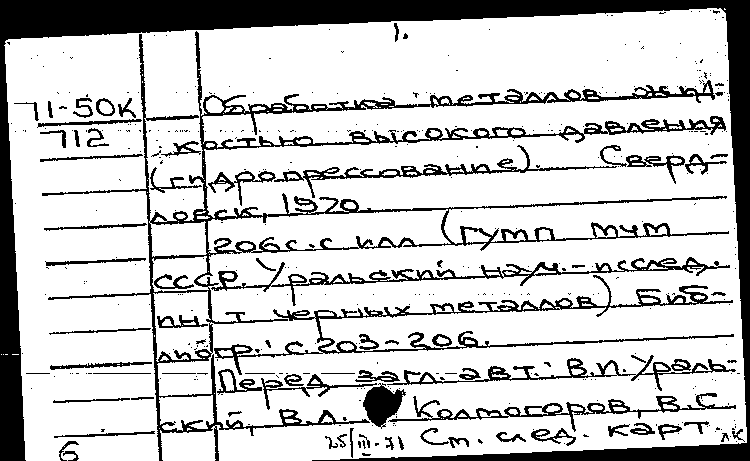 1.
71-50К Обработка металлов жид-
712 костью высокого давления
(гидропрессование). Сверд-
ловск, 1970.
206с. с илл (ГУМП МЧМ
СССР. Уральский науч.-исслед.
ин-т черных металлов) Биб-
лиогр.: с. 203-206.
Перед загл. авт.: В.И. Ураль-
ский, В.Л. Колмогоров, В.С
6 25/III-71 См. след. карт.